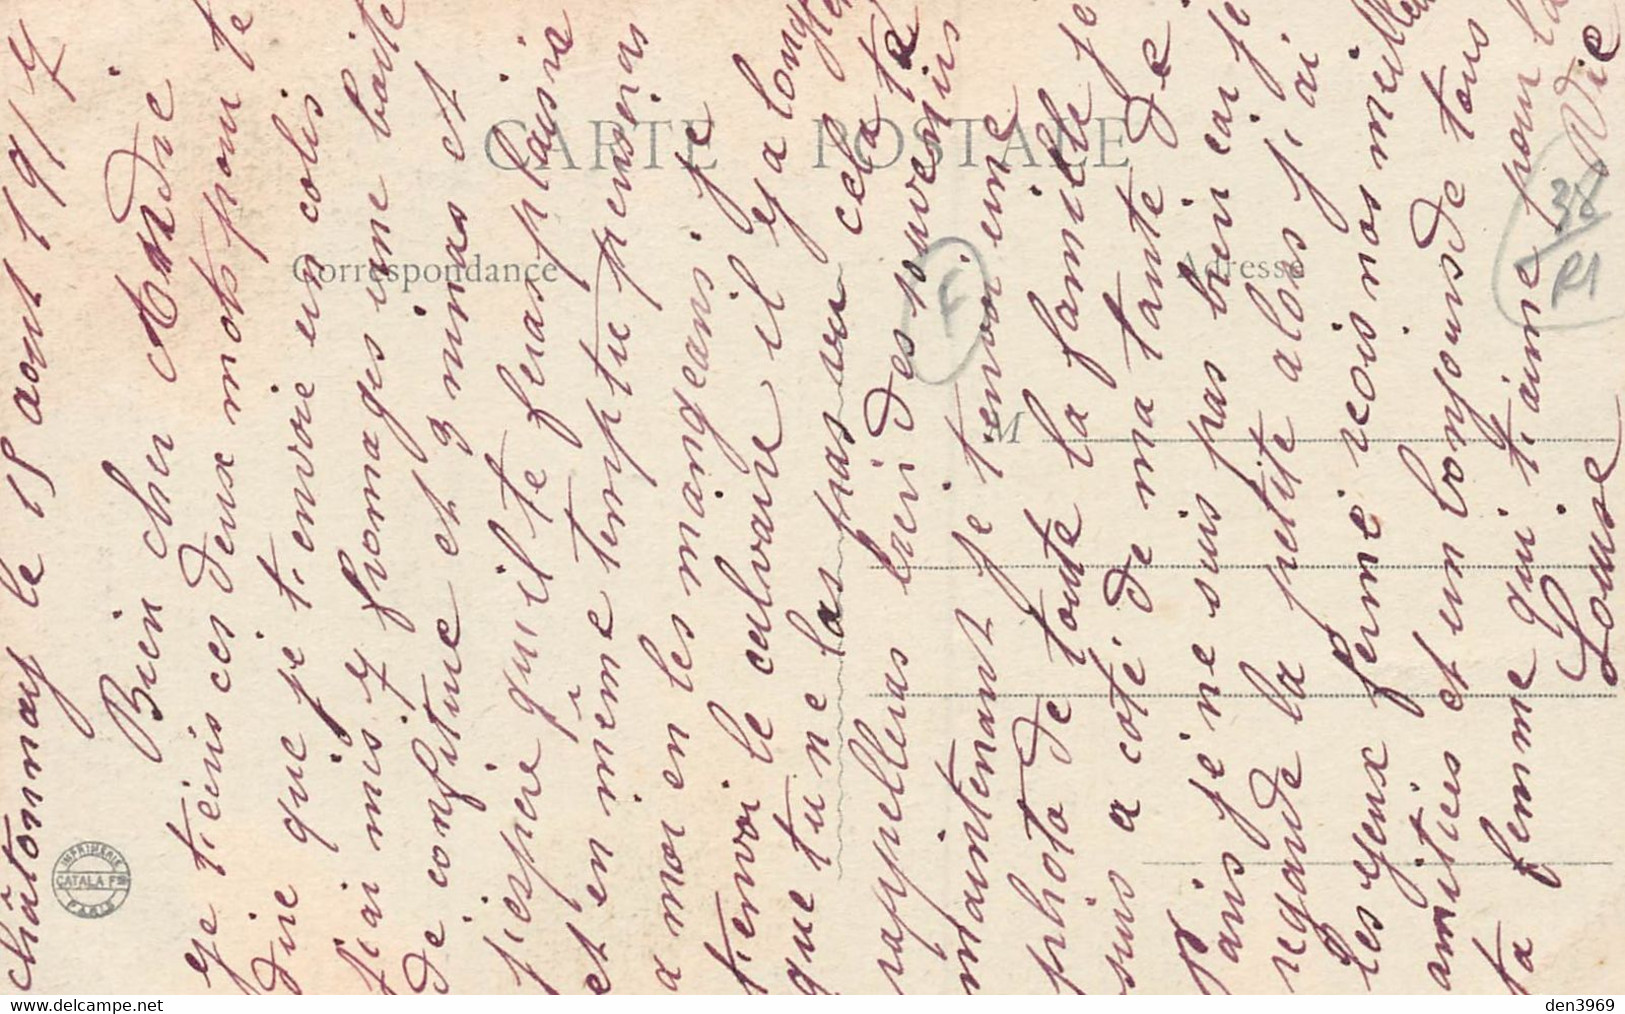 châtonnay le 15 aout 1917
Bien cher André
je tiens ces deux mots pour te
dire que je t'envoie un colis
j'ai mis 7 fromages une boite
de confiture et 3 minas et
j'espere qu'il te feras plaisir
et en même temp tu penseras
a moi en les mangeans je
t'envoi le calvaire il y a longtem
que tu ne las pas vu cela te
rappelleras bien des souvenirs
maintenant je t'envoi une
photo de toute la famille je
suis a coté de ma tante de
Paris je ne suis pas bien car je
regarde la petite alors j'ai
les yeux fermé recois nos meilleu
amitiés et un bonjour de tous
ta femme qui t'aime pour la
Vie
Louise
CARTE POSTALE
Correspondance
Adresse
M
F
38
R1
IMPRIMERIE
CATALA Fres
PARIS
delcampe.net
den3969